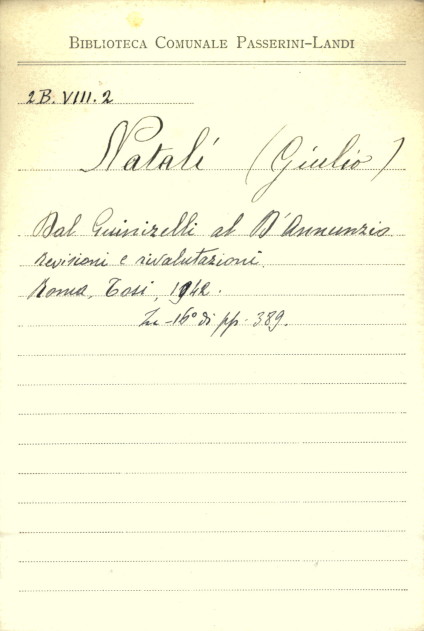 BIBLIOTECA COMUNALE PASSERINI-LANDI
2B. VIII. 2
Natali (Giulio)
Dal Guinizelli al D'Annunzio
revisioni e rivalutazioni.
Roma, Tosi, 1942.
In-16° di pp. 389.